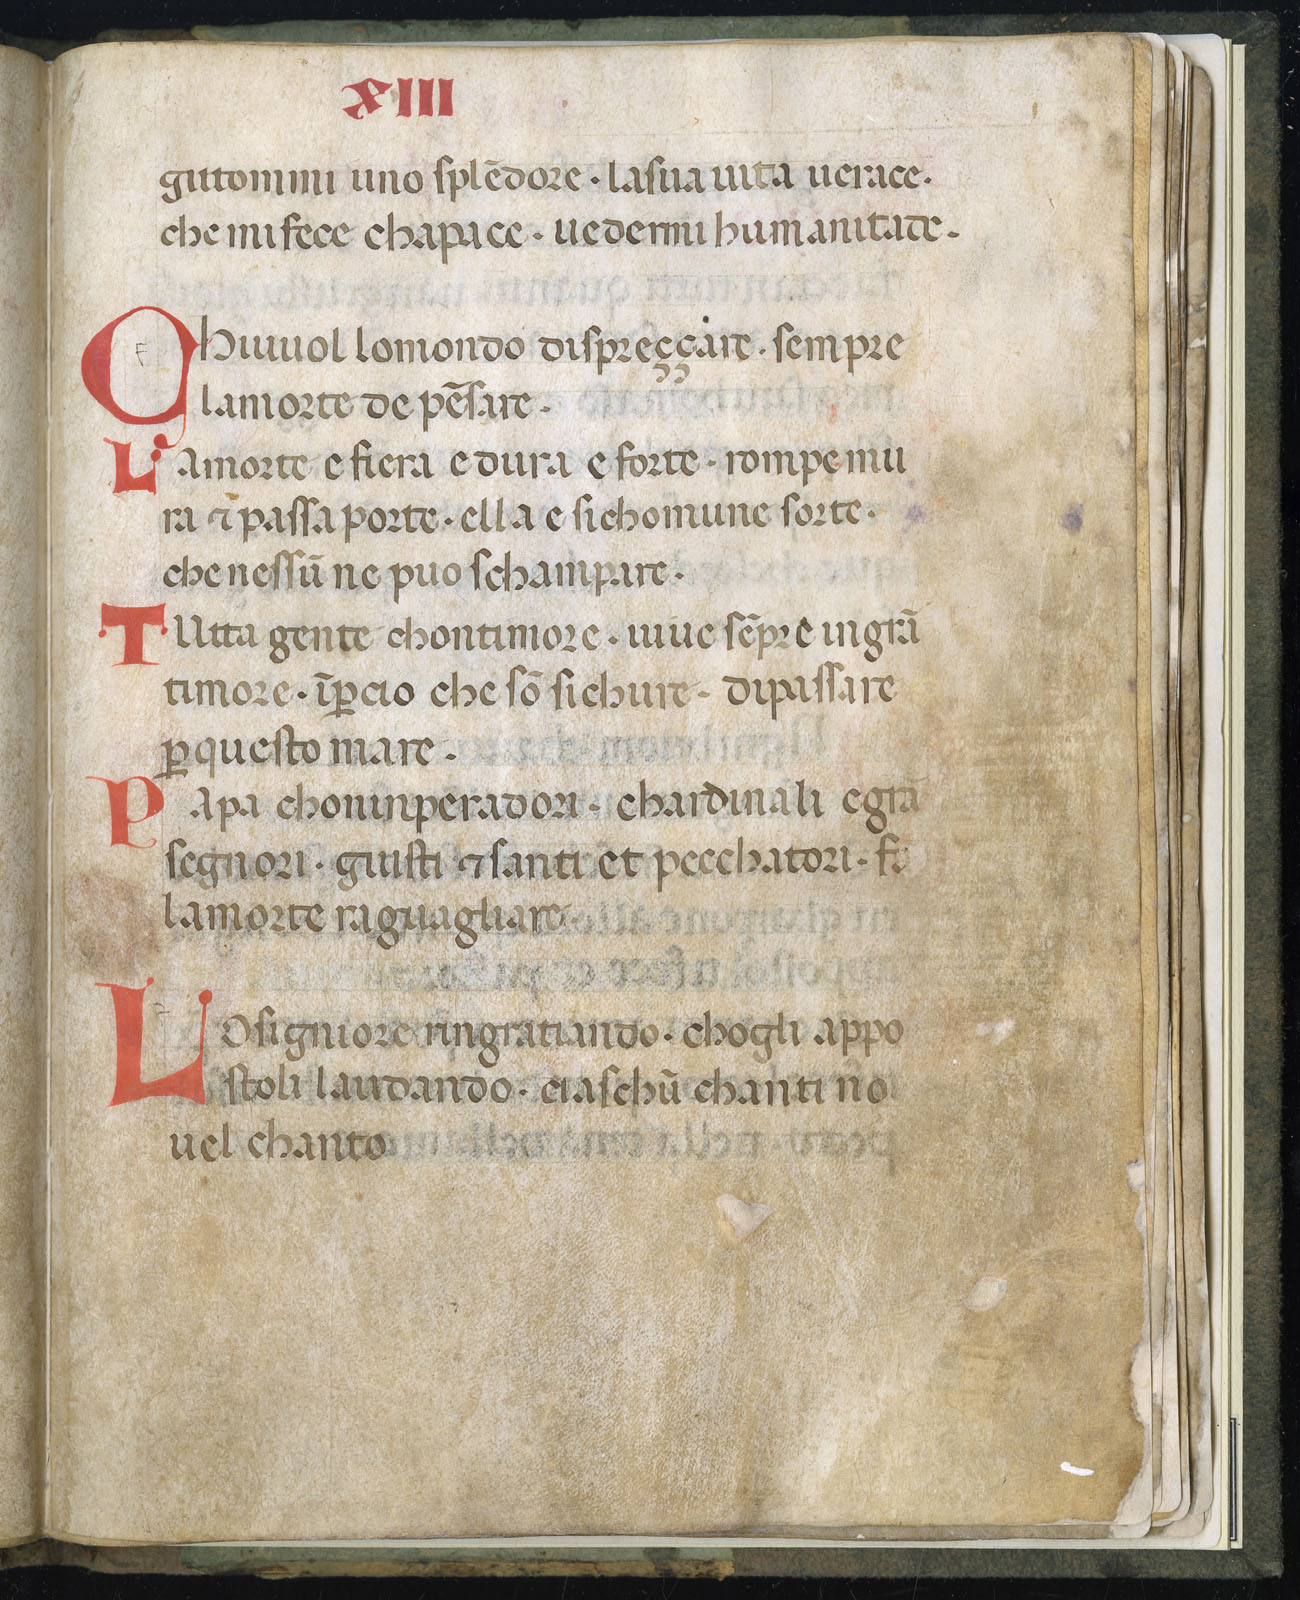 XIII
gittommi uno splēdore · lasua uita uerace ·
che mi fece chapace · uedermi humanitade ·
Chiuuol lomondo dispreççare · sempre
lamorte de pēsare ·
Lamorte e fiera e dura e forte · rompe mu
ra ⁊ passa porte · ella e si chomune sorte ·
che nessū ne puo schampare ·
TUtta gente chontimore · uiue sēpre in grā
timore · īꝑcio che sō sichure · dipassare
ꝑ questo mare ·
Papa choninperadori · chardinali e grā
segnori · giusti ⁊ santi et pecchatori · fa
lamorte raguagliare ·
LOsigniore ringratiando · chogli appo
stoli laudando · ciaschū chanti no
uel chanto